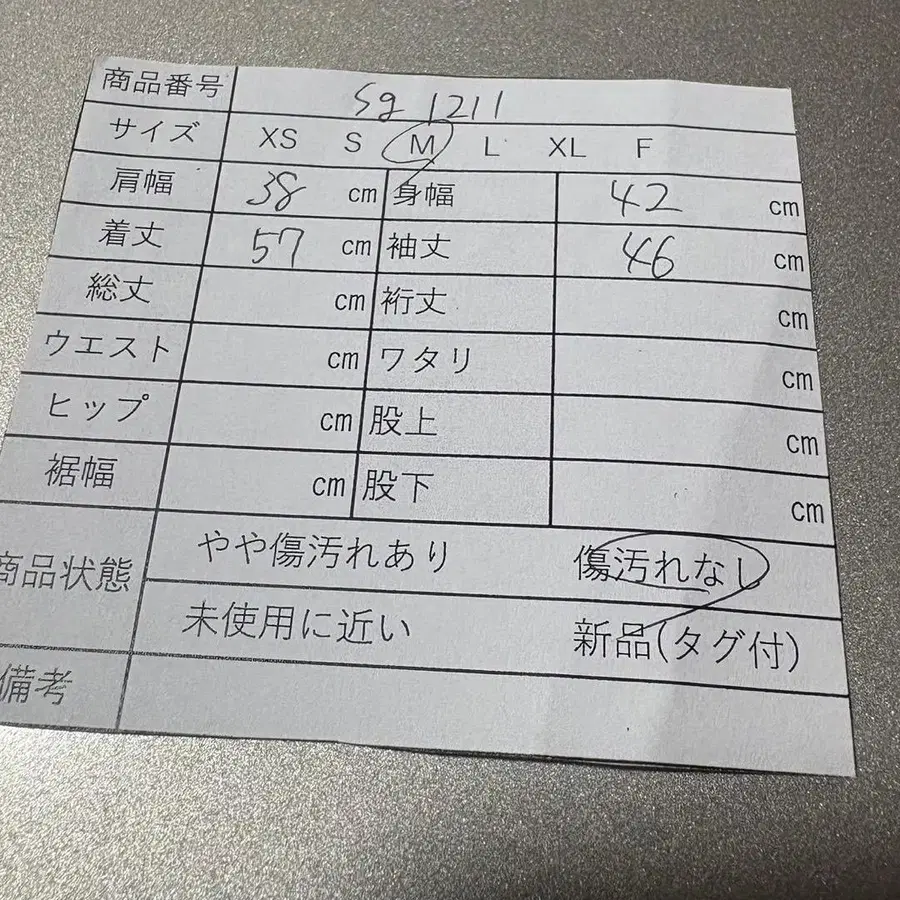 商品番号 Sg 1211
サイズ XS S M L XL F
肩幅 38 cm 身幅 42 cm
着丈 57 cm 袖丈 46 cm
総丈 cm 裄丈 cm
ウエスト cm ワタリ cm
ヒップ cm 股上 cm
裾幅 cm 股下 cm
商品状態 やや傷汚れあり 傷汚れなし
未使用に近い 新品(タグ付)
備考